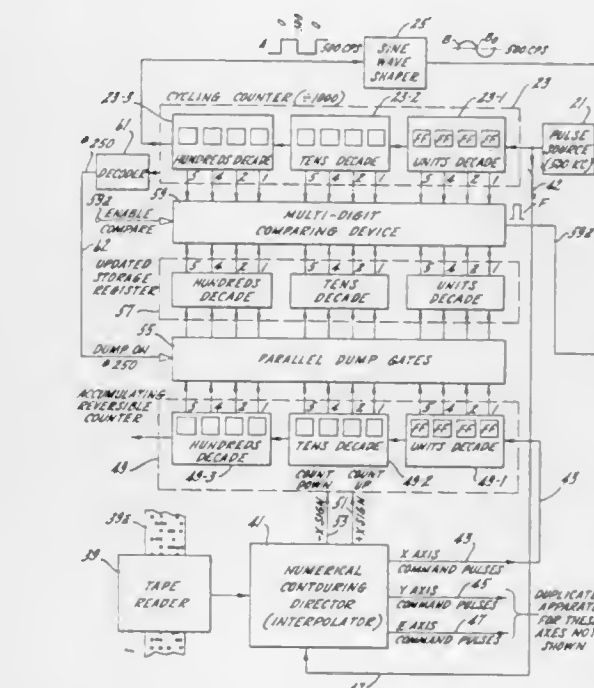 25
A
500 CPS
SINE
WAVE
SHAPER
B
B0
500 CPS
CYCLING COUNTER (÷1000)
23-3
23-2
23-1
23
21
61
#250
DECODER
HUNDREDS DECADE
TENS DECADE
FF FF FF FF
UNITS DECADE
PULSE
SOURCE
(500 KC)
42
5 4 2 1
5 4 2 1
5 4 2 1
59a
59
ENABLE
COMPARE
MULTI-DIGIT
COMPARING DEVICE
F
59b
62
UPDATED
STORAGE
REGISTER
57
5 4 2 1
5 4 2 1
5 4 2 1
HUNDREDS
DECADE
TENS
DECADE
UNITS
DECADE
55
DUMP ON
#250
PARALLEL DUMP GATES
ACCUMULATING
REVERSIBLE
COUNTER
5 4 2 1
5 4 2 1
5 4 2 1
HUNDREDS
DECADE
TENS DECADE
FF FF FF FF
UNITS DECADE
49
49-3
COUNT
DOWN
COUNT
UP
49-2
49-1
43
-X SIGN
53
51
+X SIGN
39a
39
41
TAPE
READER
NUMERICAL
CONTOURING
DIRECTOR
(INTERPOLATOR)
X AXIS
43
COMMAND PULSES
Y AXIS
45
COMMAND PULSES
Z AXIS
47
COMMAND PULSES
DUPLICATE
APPARAT
FOR THESE
AXES NOT
SHOWN